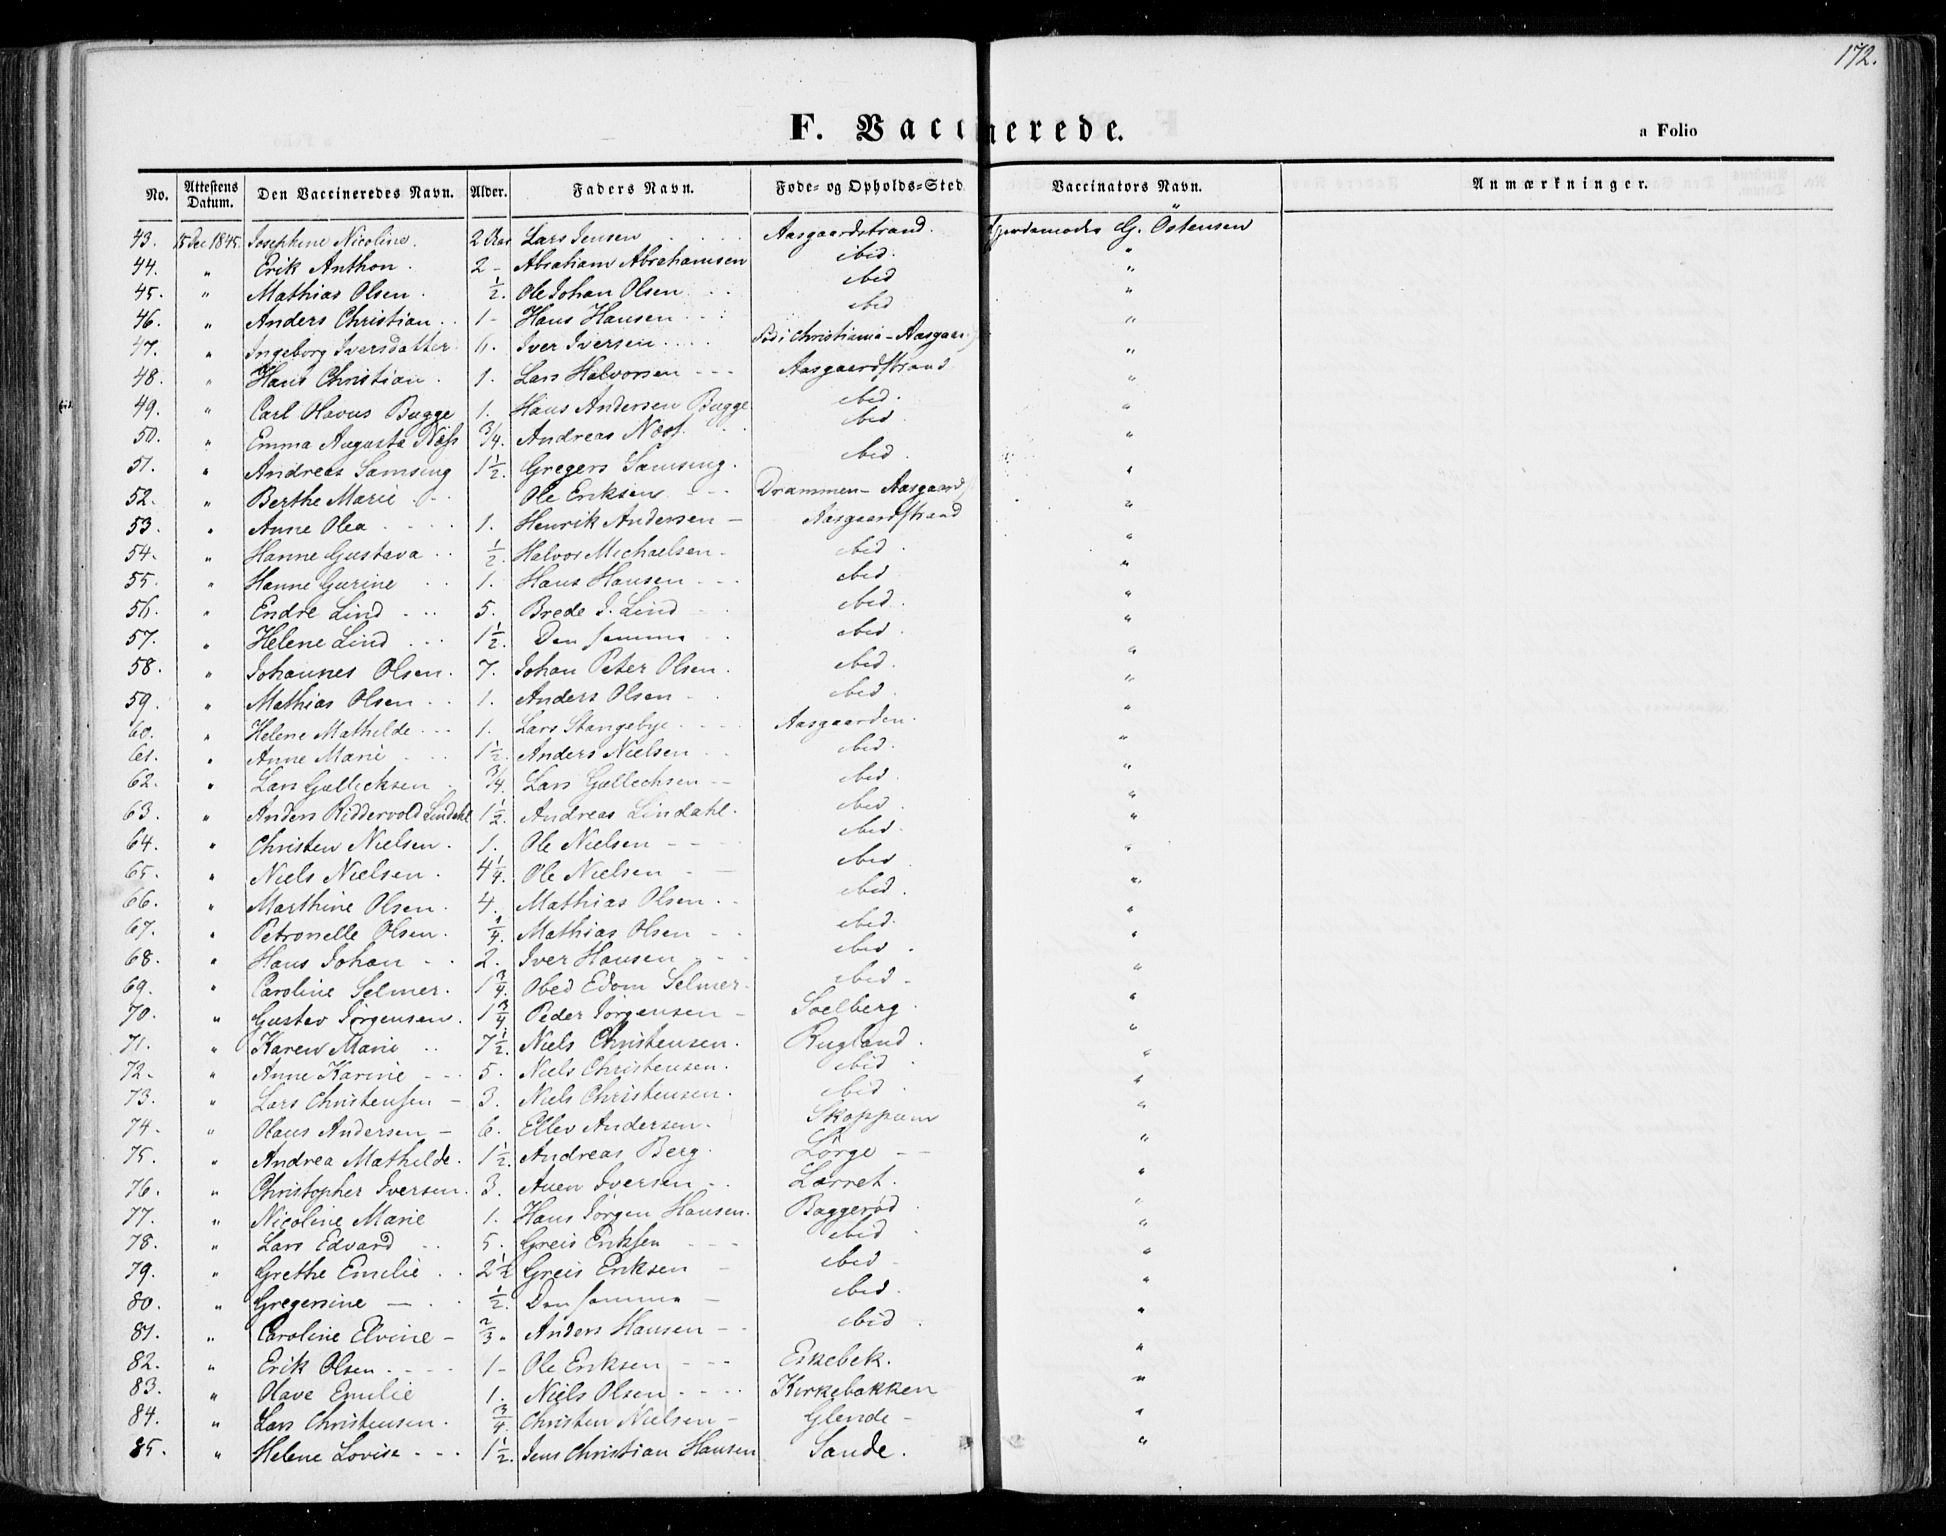 172.
F. Vaccinerede.
a Folio
No. Attestens Datum. Den Vaccineredes Navn. Alder. Faders Navn. Føde- og Opholds-Sted Vaccinators Navn. Anmærkninger.
43. 15 Dec 1845. Josephine Nicoline. 2 Aar Lars Jensen Aasgaardstrand. G. Östensen
44. " Erik Anthon. 2 - Abraham Abrahamsen ibid. "
45. " Mathias Olsen. ½. Ole Johan Olsen ibid "
46. " Anders Christian. 1 - Hans Hansen ibid "
47. " Ingeborg Iversdatter 6. Iver Iversen Fød i Christiania - Aasgaar "
48. " Hans Christian. 1. Lars Halvorsen - - - Aasgaardstrand "
49. " Carl Olavus Bugge 1. Hans Andersen Bugge ibid. "
50. " Emma Augusta Næss ¾. Andreas Næss ibid. "
51. " Andreas Samsing 1½. Gregers Samsing. ibid. "
52. " Berthe Marie Ole Eriksen - - Drammen - Aasgaard "
53. " Anne Olea 1. Henrik Andersen - Aasgaardstrand "
54. " Hanne Gustava ½. Halvor Michaelsen - ibid. "
55. " Hanne Gurine 1. Hans Hansen - - - ibid "
56. " Endre Lind 5. Brede J. Lind ibid. "
57. " Helene Lind 1½. Den samme ibid. "
58. " Johannes Olsen. 7. Johan Peter Olsen. ibid. "
59. " Mathias Olsen 1. Anders Olsen ibid. "
60. " Helene Mathilde - - - 1. Lars Stangebye Aasgaarden. "
61. " Anne Marie 1½. Anders Nielsen ibid. "
62. " Lars Gullicksen ¾. Lars Gullechsen - - ibid. "
63. " Anders Riddervold Lindahl 1½. Andreas Lindahl. ibid. "
64. " Christen Nielsen. 1. Ole Nielsen - - - ibid. "
65. " Niels Nielsen. 4¼. Ole Nielsen - - ibid. "
66. " Marthine Olsen. 4. Mathias Olsen ibid. "
67. " Petronelle Olsen. ¼. Mathias Olsen ibid. "
68. " Hans Johan 2. Iver Hansen ibid. "
69. " Caroline Selmer. 1¾. Obed Edom Selmer. ibid - "
70. " Gustav Jörgensen. 1¾. Peder Jörgensen - Soelberg. "
71. " Karen Marie 7½. Niels Christensen. Rugland. "
72. " Anne Karine - - - 5. Niels Christensen. ibid. "
73. " Lars Christensen - 3. Niels Christensen. ibid. "
74. " Hans Andersen - 6. Ellev Andersen. Skoppum "
75. " Andrea Mathilde. 1½. Andreas Berg. Lörge - - "
76. " Christopher Iversen. 3. Auen Iversen - Lærret. "
77. " Nicoline Marie 1. Hans Jörgen Hansen. Baggerød. "
78. " Lars Edvard 5. Greis Eriksen - - - ibid. "
79. " Grethe Emilie 2½ Greis Eriksen - ibid - "
80. " Gregersine - ½. Den samme - ibid. "
81. " Caroline Elvine - ⅔. Anders Hansen - - ibid. "
82. " Erik Olsen - - - - 1 - Ole Eriksen - - - Eskebek. "
83. " Olave Emilie 1. Niels Olsen - - - - Kirkebakken "
84. " Lars Christensen. ¾. Christen Nielsen - Glende - "
85. " Helene Lovise - - - 1½. Jens Christian Hansen Sande. "